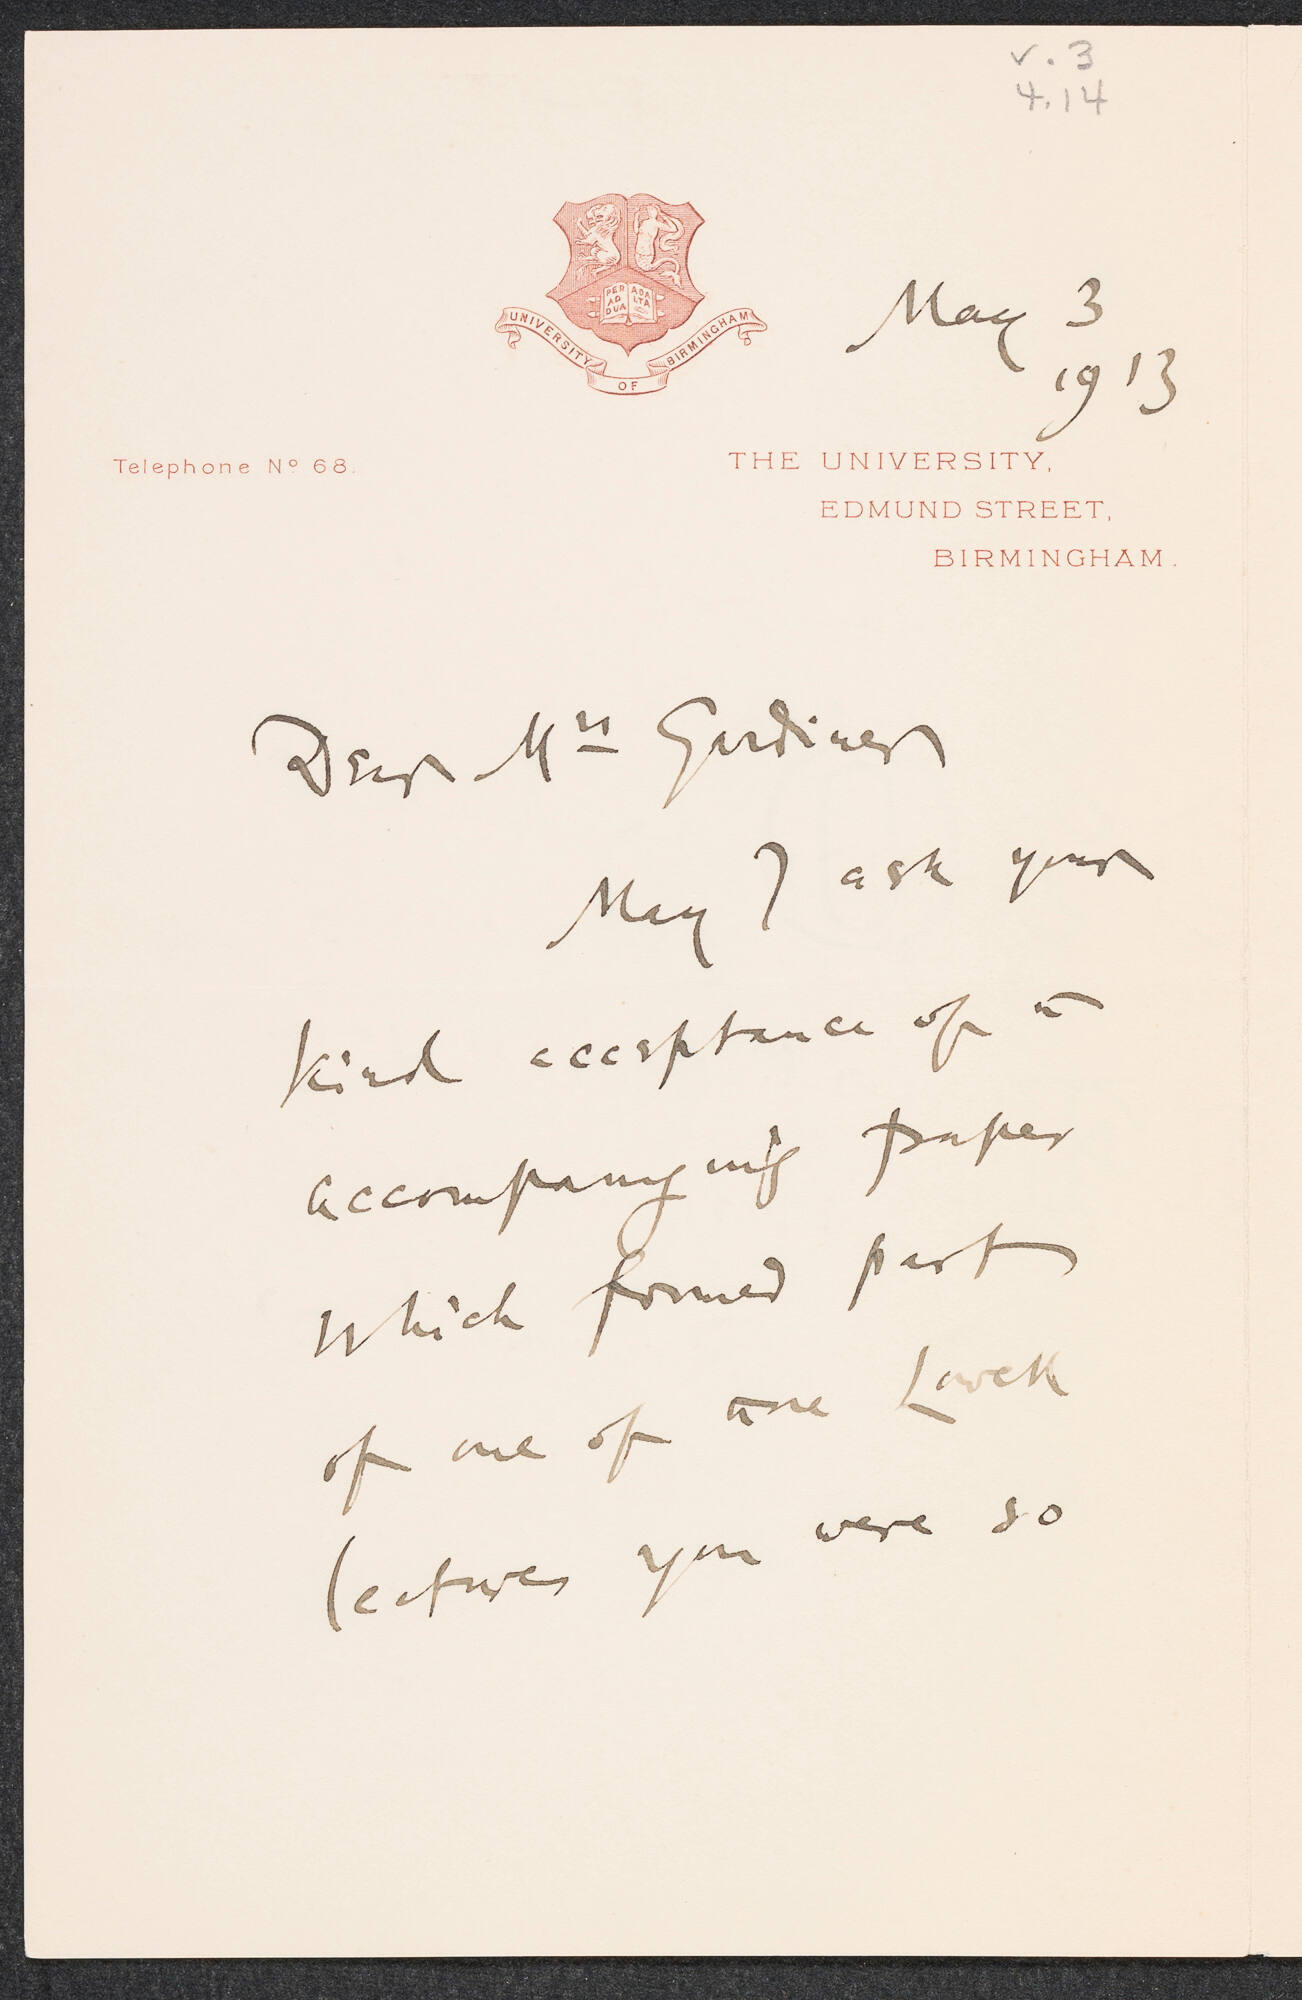 v. 3
4.14
PER AD ARDUA ALTA
UNIVERSITY OF BIRMINGHAM
May 3
1913
Telephone Nº 68.
THE UNIVERSITY,
EDMUND STREET,
BIRMINGHAM.
Dear Mrs Gardiner
May I ask your
kind acceptance of
accompanying paper
which formed part
of one of the Lowell
lectures you were so